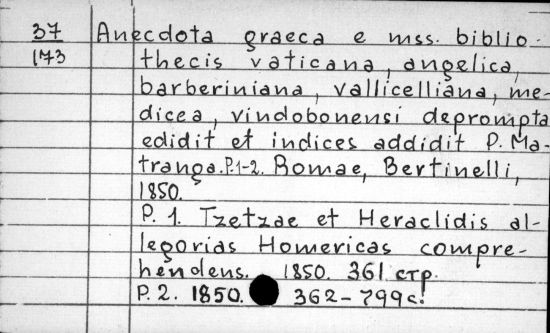 37 Anecdota graeca e mss. biblio-
173 thecis vaticana, angelica,
barberiniana, vallicelliana, me-
dicea, vindobonensi deprompta
edidit et indices addidit P. Ma-
tranga. P. 1-2. Romae, Bertinelli,
1850.
P. 1. Tzetzae et Heraclidis al-
legorias Homericas compre-
hendens. 1850. 361 стр.
P. 2. 1850. 362-799 с.